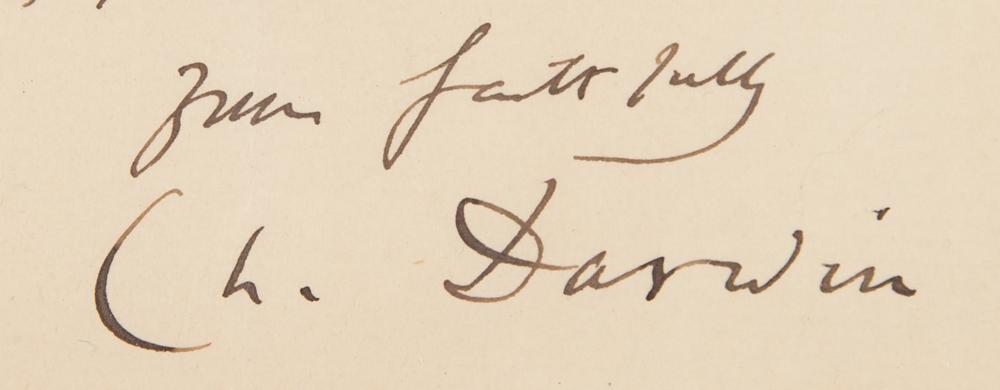 yours faithfully
Ch. Darwin